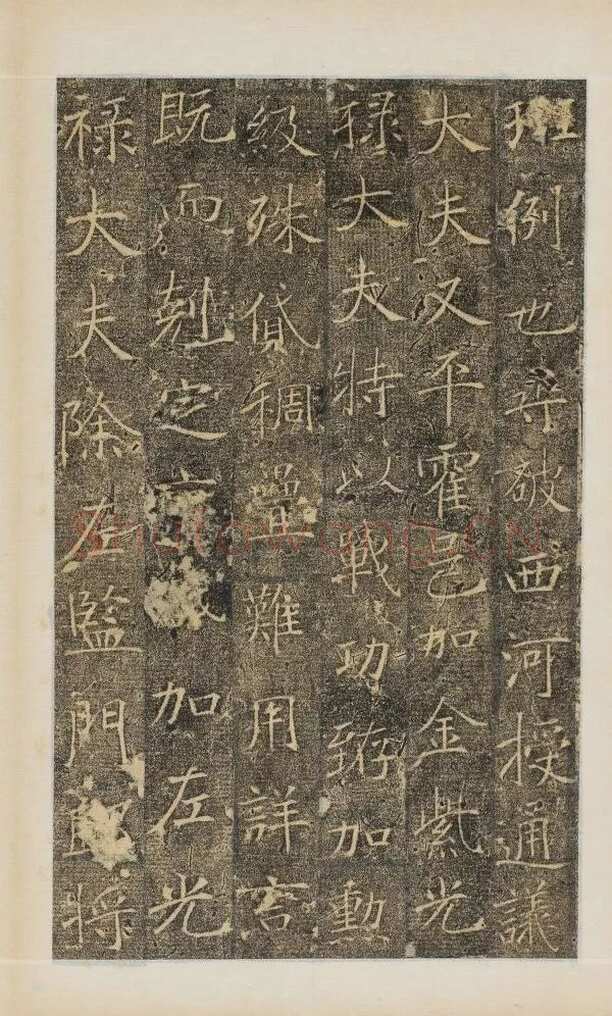 班例也尋破西河授通議
大夫又平霍邑加金紫光
祿大夫特以戰功臶加勳
級殊貸稠疊難用詳言
既而剋定京城加左光
祿大夫除左監門郎將